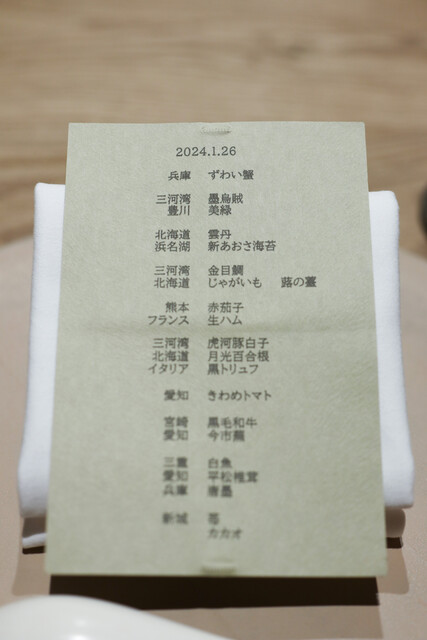 2024.1.26
兵庫 ずわい蟹
三河湾 墨烏賊
豊川 美緑
北海道 雲丹
浜名湖 新あおさ海苔
三河湾 金目鯛
北海道 じゃがいも 蕗の薹
熊本 赤茄子
フランス 生ハム
三河湾 虎河豚白子
北海道 月光百合根
イタリア 黒トリュフ
愛知 きわめトマト
宮崎 黒毛和牛
愛知 今市蕪
三重 白魚
愛知 平松椎茸
兵庫 唐墨
新城 苺
カカオ